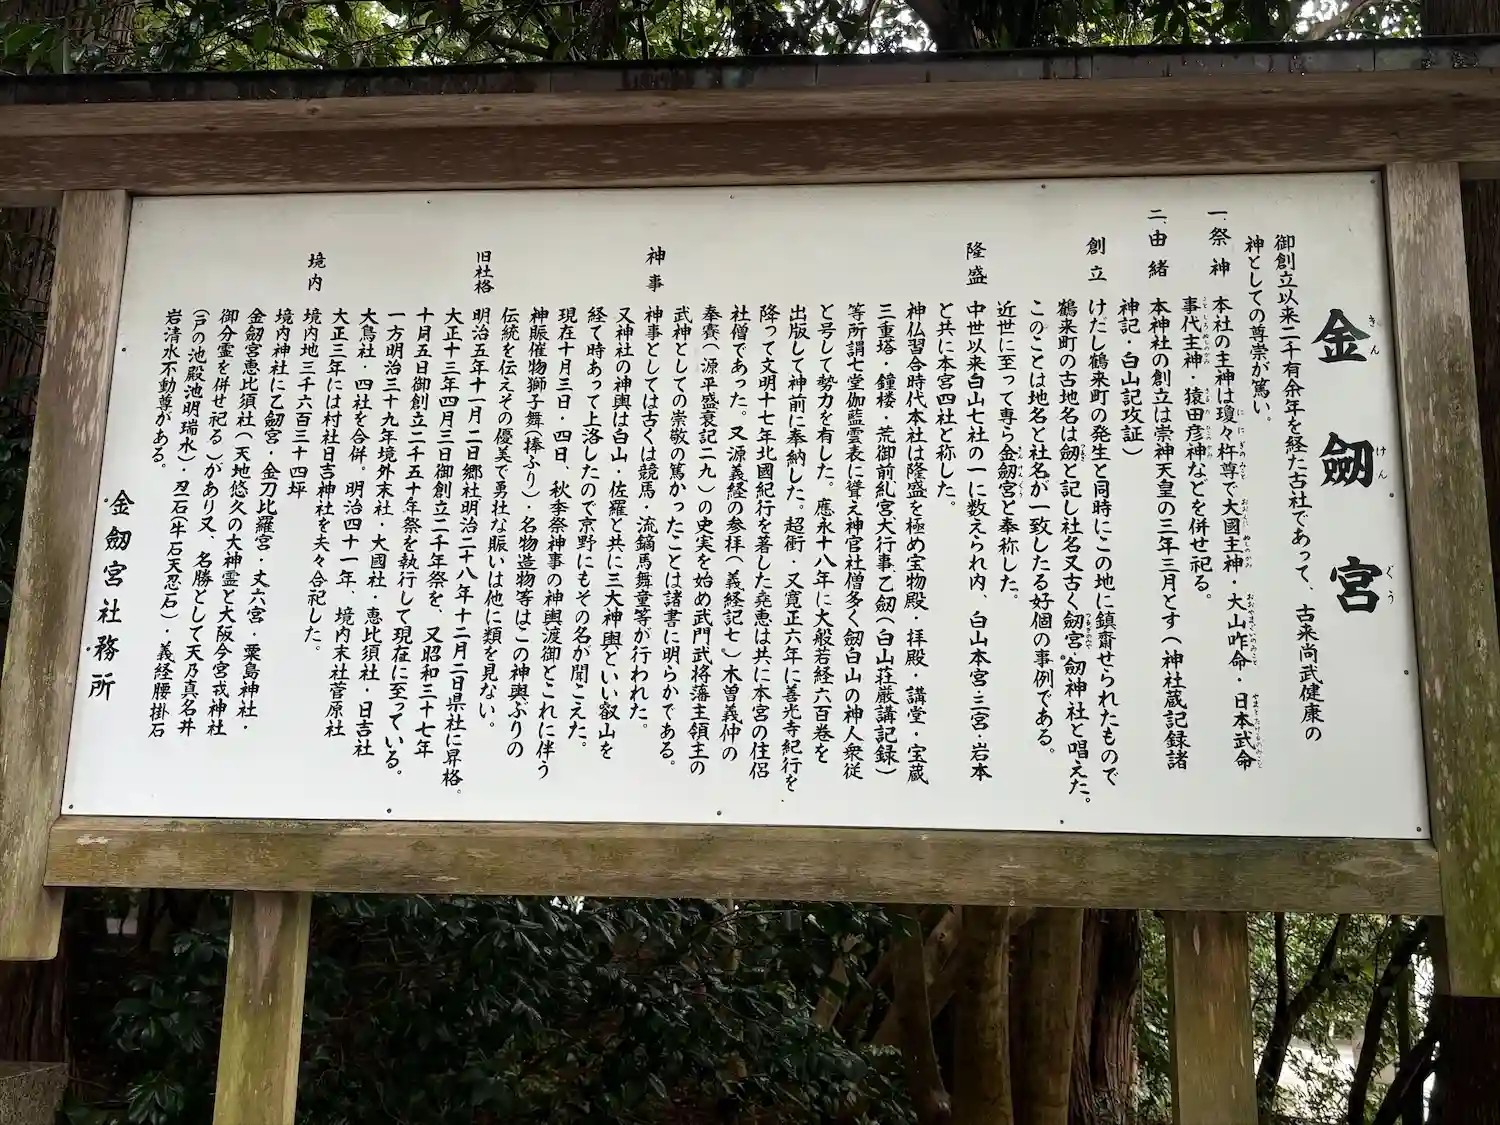 金劔宮
きんけんぐう
御創立以来二千有余年を経た古社であって、古来尚武健康の
神としての尊崇が篤い。
一、祭神 本社の主神は瓊々杵尊で大國主神・大山咋命・日本武命
事代主神・猿田彦神などを併せ祀る。
二、由緒 本神社の創立は崇神天皇の三年三月とす(神社蔵記録諸
神記・白山記攷証)
創立 けだし鶴来町の発生と同時にこの地に鎮斎せられたもので
鶴来町の古地名は劔と記し社名又古く劔宮・劔神社と唱えた。
このことは地名と社名が一致したる好個の事例である。
近世に至って専ら金劔宮と奉称した。
隆盛 中世以来白山七社の一に数えられ内、白山本宮・三宮・岩本
と共に本宮四社と称した。
神仏習合時代本社は隆盛を極め宝物殿・拝殿・講堂・宝蔵
三重塔・鐘楼・荒御前糺宮大行事乙劔(白山荘厳講記録)
等所謂七堂伽藍雲表に聳え神官社僧多く劔白山の神人衆徒
と号して勢力を有した。應永十八年に大般若経六百巻を
出版して神前に奉納した。超衝・又寛正六年に善光寺紀行を
降って文明十七年北國紀行を著した堯恵は共に本宮の住侶
社僧であった。又源義経の参拝(義経記七)木曽義仲の
奉賽(源平盛衰記二九)の史実を始め武門武将藩主領主の
武神としての崇敬の篤かったことは諸書に明らかである。
神事 神事としては古くは競馬・流鏑馬舞童等が行われた。
又神社の神輿は白山・佐羅と共に三大神輿といい叡山を
経て時あって上洛したので京野にもその名が聞こえた。
現在十月三日・四日、秋季祭神事の神輿渡御とこれに伴う
神賑催物獅子舞(棒ふり)・名物造物等はこの神輿ぶりの
伝統を伝えその優美で勇壮な賑いは他に類を見ない。
旧社格 明治五年十一月二日郷社明治二十八年十二月二日県社に昇格。
大正十三年四月三日御創立二千年祭を、又昭和三十七年
十月五日御創立二千五十年祭を執行して現在に至っている。
一方明治三十九年境外末社・大國社・恵比須社・日吉社
大鳥社・四社を合併。明治四十一年、境内末社菅原社
大正三年には村社日吉神社を夫々合祀した。
境内 境内地三千六百三十四坪
境内神社に乙劔宮・金刀比羅宮・丈六宮・粟島神社・
金劔宮恵比須社(天地悠久の大神霊と大阪今宮戎神社
御分霊を併せ祀る)があり又、名勝として天乃真名井
(戸の池殿池明瑞水)・忍石(牛石天忍石)・義経腰掛石
岩清水不動尊がある。
金劔宮社務所